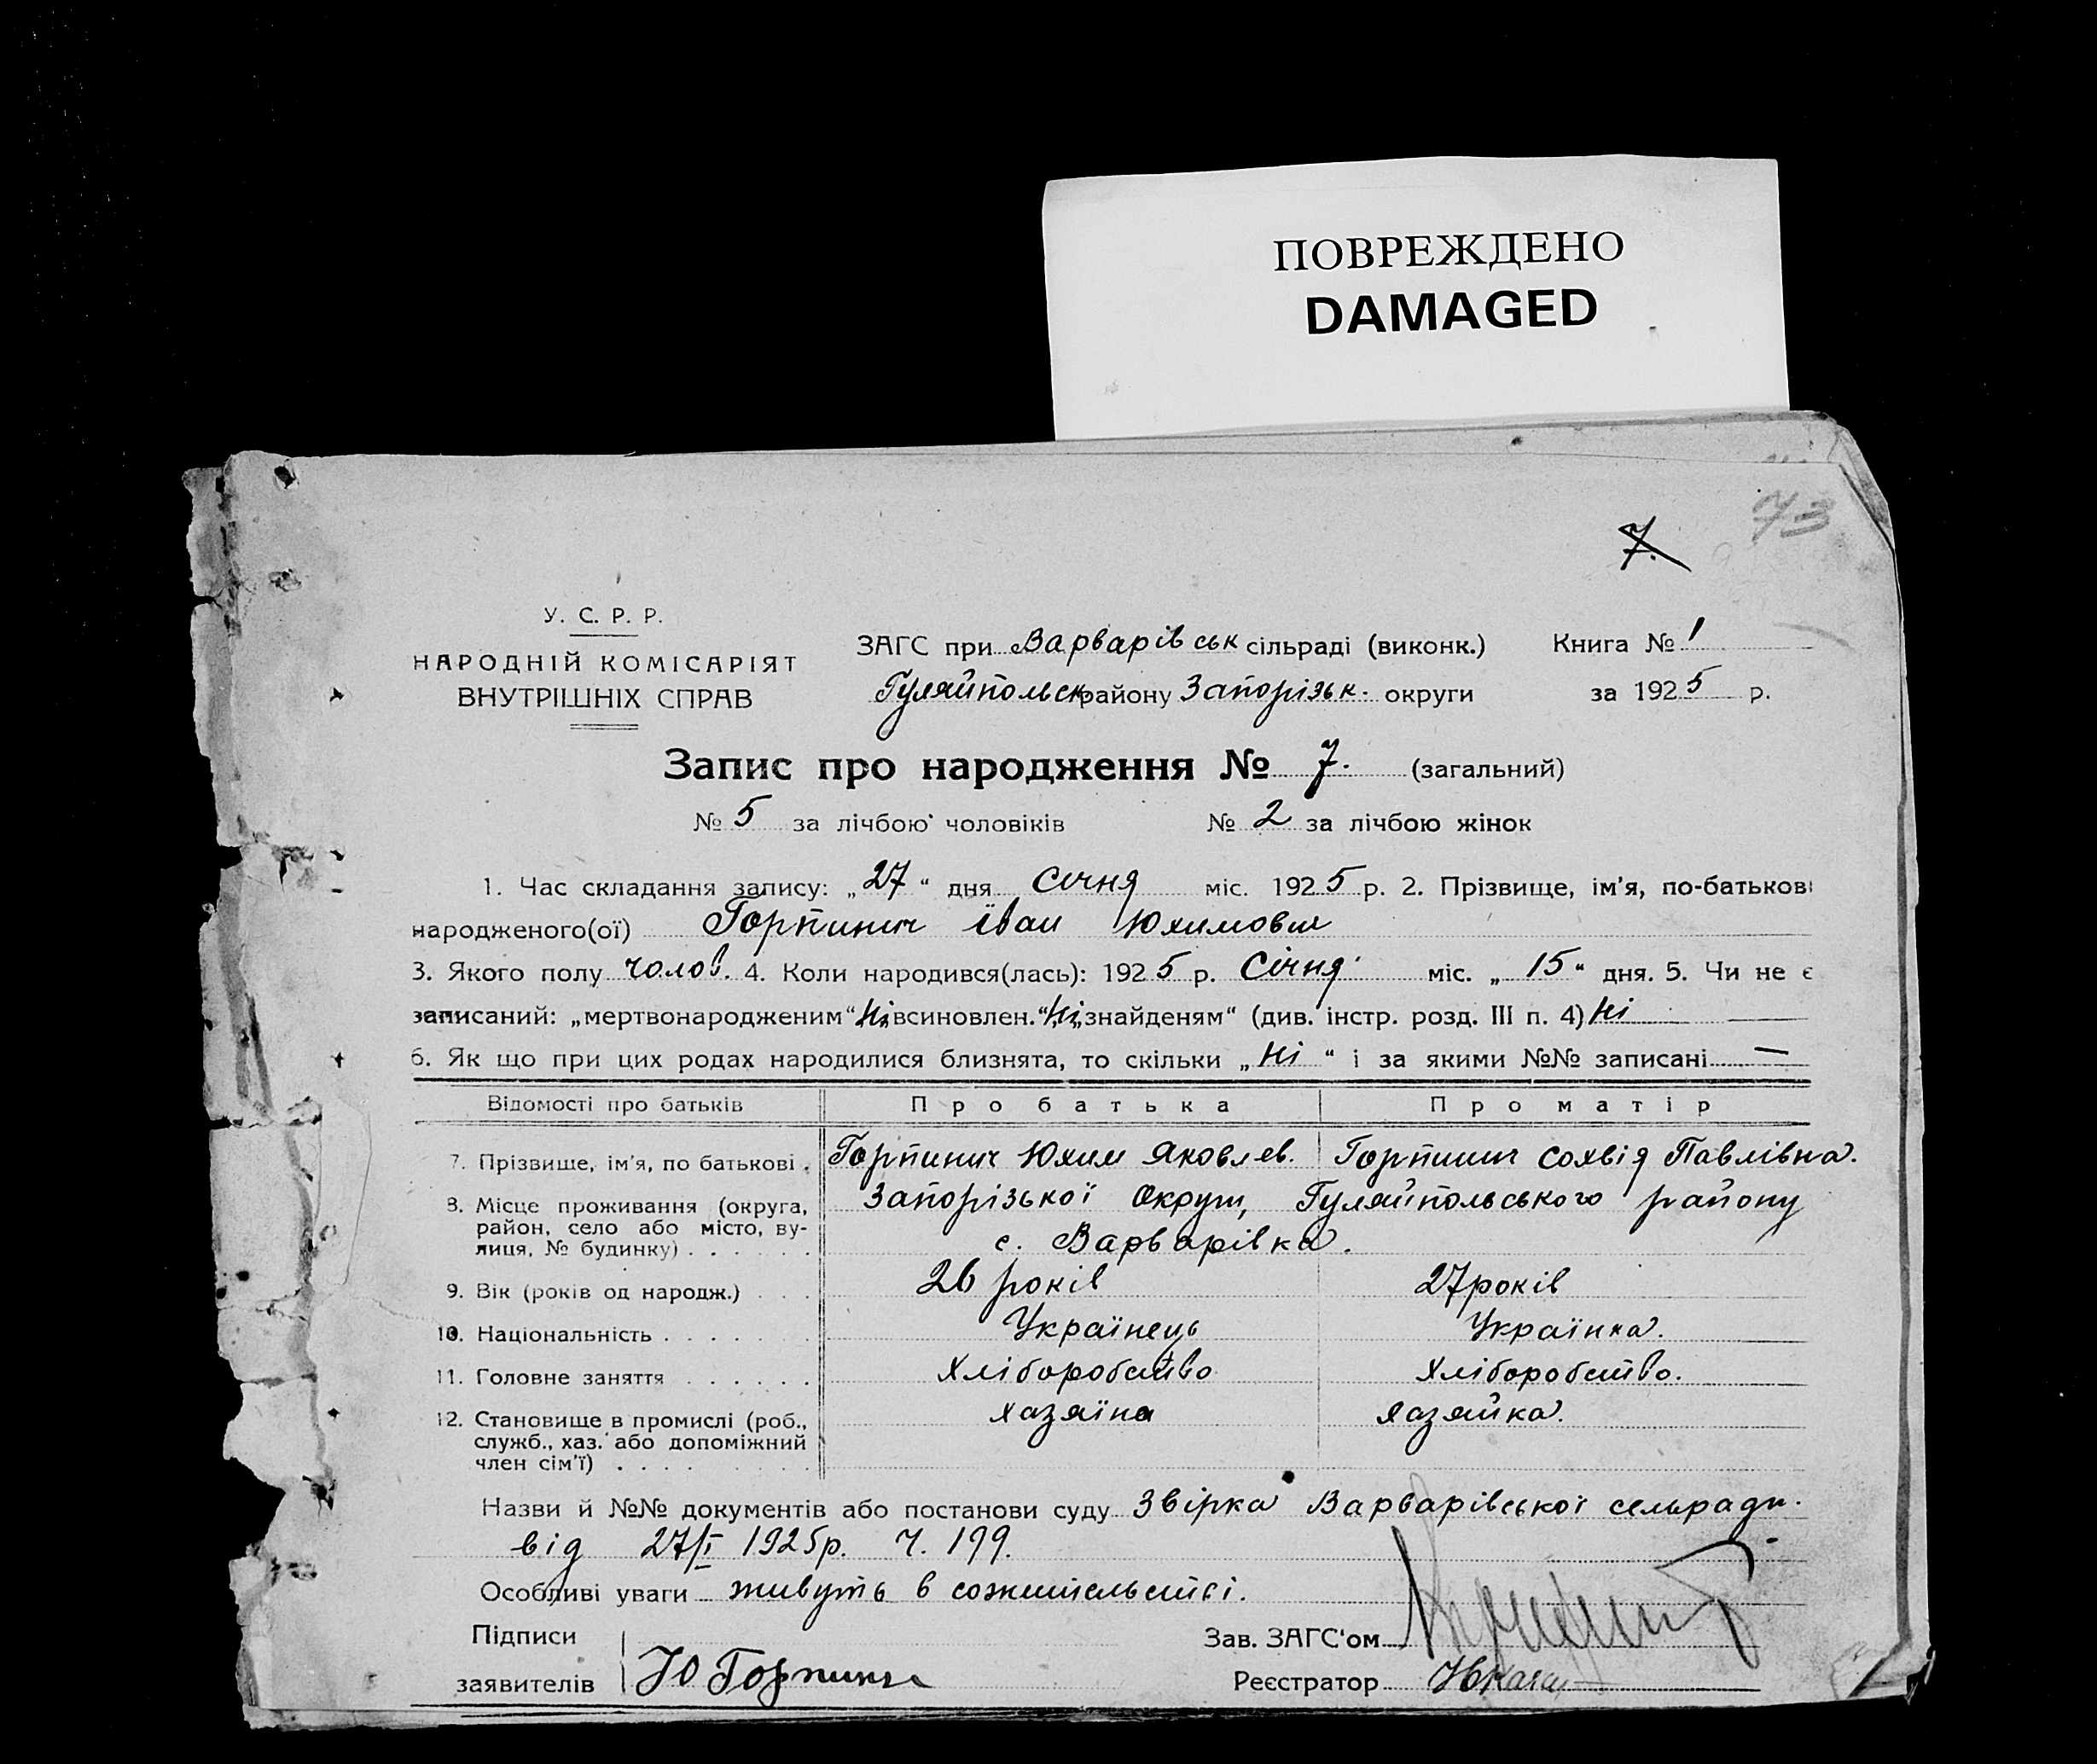 ПОВРЕЖДЕНО
DAMAGED
73
7.
У. С. Р. Р.
НАРОДНІЙ КОМІСАРІЯТ
ВНУТРІШНІХ СПРАВ
ЗАГС при Варварівськ сільраді (виконк.) Книга № 1
Гуляйпольск району Запорізьк. округи за 1925 р.
Запис про народження № 7. (загальний)
№ 5 за лічбою чоловіків № 2 за лічбою жінок
1. Час складання запису: „27“ дня Січня міс. 1925 р. 2. Прізвище, ім'я, по-батькові
народженого(ої) Горпинич Іван Юхимович
3. Якого полу чолов. 4. Коли народився(лась): 1925 р. Січня міс. „15“ дня. 5. Чи не є
записаний: „мертвонародженим“ Ні „всиновлен.“ Ні „знайденям“ (див. інстр. розд. III п. 4) Ні
6. Як що при цих родах народилися близнята, то скільки „Ні“ і за якими №№ записані —
Відомості про батьків Про батька Про матір
7. Прізвище, ім'я, по батькові . Горпинич Юхим Яковлев. Горпинич Сохвія Павлівна.
8. Місце проживання (округа, Запорізької Округи, Гуляйпольського району
район, село або місто, ву-
лиця, № будинку) . . . . . . с. Варварівка.
9. Вік (років од народж.) . . . 26 років 27 років
10. Національність . . . . . . . Українець Українка.
11. Головне заняття . . . . . . Хліборобство Хліборобство.
12. Становище в промислі (роб., хазяїна хазяйка.
служб., хаз. або допоміжний
член сім'ї) . . . .
Назви й №№ документів або постанови суду Звірка Варварівської сельради.
від 27/I 1925р. Ч. 199.
Особливі уваги живуть в сожительстві.
Підписи
Зав. ЗАГС'ом
заявителів Ю Горпинич Реєстратор